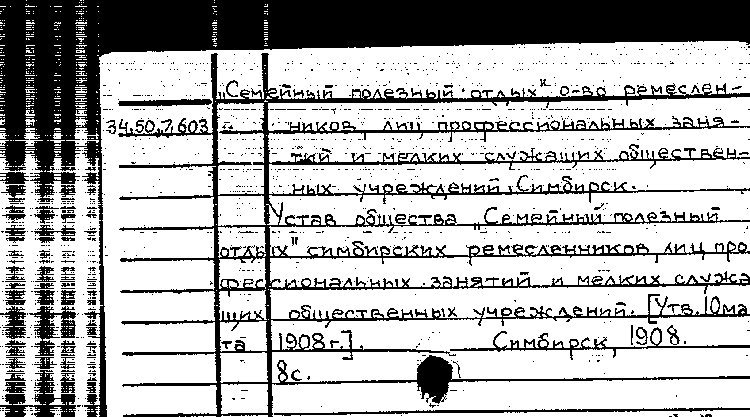 „Семейный полезный отдых", о-во ремеслен-
34.50.7.603 ников, лиц профессиональных заня-
тий и мелких служащих обществен-
ных учреждений, Симбирск.
Устав общества „Семейный полезный
отдых" симбирских ремесленников, лиц про
фессиональных занятий и мелких служа
щих общественных учреждений. [Утв. 10 ма
та 1908 г.]. Симбирск, 1908.
8с.